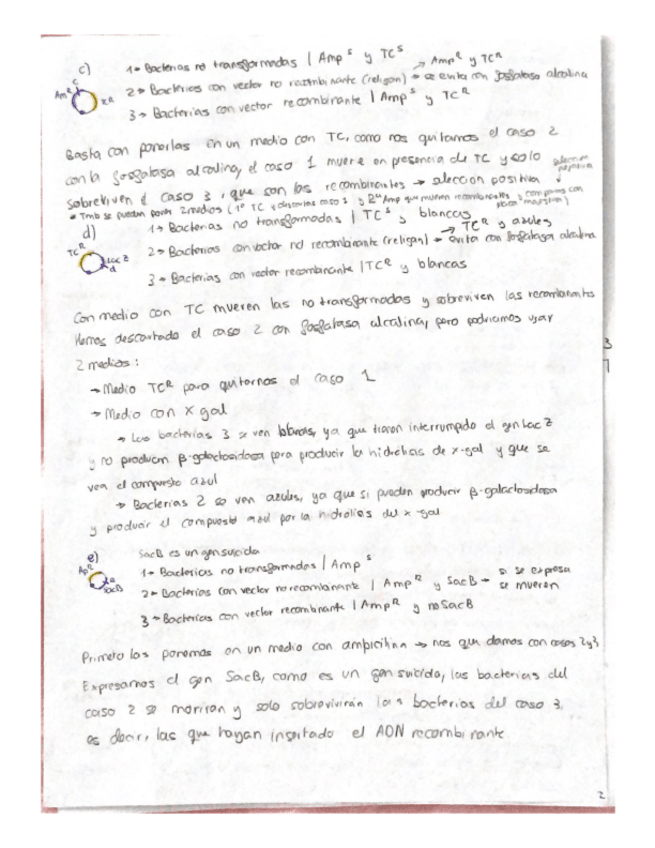 c)
1→ Bacterias no transformadas | Amp^S y TC^S
Amp^R y TC^R
2→ Bacterias con vector no recombinante (religan) → se evita con fosfatasa alcalina
3→ Bacterias con vector recombinante | Amp^S y TC^R
Basta con ponerlas en un medio con TC, como nos quitamos el caso 2
con la fosfatasa alcalina, el caso 1 muere en presencia de TC y solo
sobreviven el caso 3, que son las recombinantes → selección positiva
selección negativa
* Tmb se pueden poner 2 medios (1º TC y descartas caso 1 y 2º Amp que mueren recombinantes y comparas con placa maestra)
d)
1→ Bacterias no transformadas | TC^S y blancas
TC^R y azules
2→ Bacterias con vector no recombinante (religan) → evita con fosfatasa alcalina
TC^R
Lac Z
d
3→ Bacterias con vector recombinante | TC^R y blancas
Con medio con TC mueren las no transformadas y sobreviven las recombinantes
Hemos descartado el caso 2 con fosfatasa alcalina, pero podriamos usar
2 medios:
→ Medio TC^R para quitarnos el caso 1
→ Medio con X gal
→ Las bacterias 3 se ven blancas, ya que tienen interrumpido el gen Lac Z
y no producen β-galactosidasa para producir la hidrólisis de x-gal y que se
vea el compuesto azul
→ Bacterias 2 se ven azules, ya que si pueden producir β-galactosidasa
y producir el compuesto azul por la hidrólisis del x-gal
e)
SacB es un gen suicida
Ap^R
SacB
1→ Bacterias no transformadas | Amp^S
2→ Bacterias con vector no recombinante | Amp^R y SacB → si se expresa se mueren
3→ Bacterias con vector recombinante | Amp^R y no SacB
Primero las ponemos en un medio con ampicilina → nos quedamos con casos 2 y 3
Expresamos el gen SacB, como es un gen suicida, las bacterias del
caso 2 se moriran y solo sobrevivirán las bacterias del caso 3,
es decir, las que hayan insertado el ADN recombinante.
2